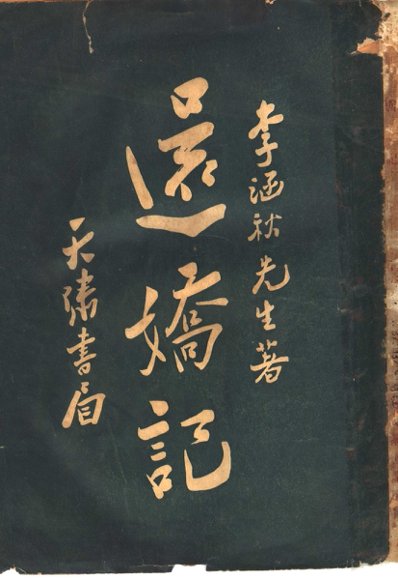 李涵秋先生著
還嬌記
天嘯書眉